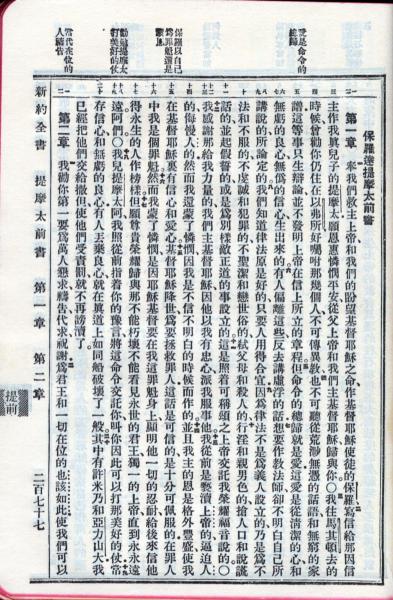 保羅達提摩太前書
愛是命令的總歸
保羅以自己為罪魁還是蒙恩
勸勉提摩太打美好的仗
當代在位的人禱告
第一章 奉我們救主上帝和我們的盼望基督耶穌之命、作基督耶穌使徒的保羅、寫信給那因信
主作我真兒子的提摩太、願恩惠憐憫平安、從父上帝和我們主基督耶穌、歸與你○我往馬其頓去的
時候、曾勸你仍住在以弗所、好囑咐那幾個人、不可傳異教、也不可聽從荒渺無憑的話語、和無窮的家
譜、這等事只生辯論、並不發明上帝在信上所立的章程、但命令的總歸就是愛、這愛是從清潔的心、和
無虧的良心、無偽的信心、生出來的、有人偏離這些、反去講虛浮的話、想要作教法師、卻不明白自己所
講說的所論定的、我們知道律法原是好的、只要人用得合宜、因為律法不是為義人設立的、乃是為不
法和不服的、不虔誠和犯罪的、不聖潔和戀世俗的、弒父母和殺人的、行淫和親男色的、搶人口和說謊
話的、並起假誓的、或是為別樣敵正道的事設立的、這是照着可稱頌之上帝交託我榮耀福音說的○
我感謝那給我力量的、我們主基督耶穌、因他以我有忠心、派我服事他、我從前是褻瀆上帝的、逼迫人
的、侮慢人的、然而我還蒙了憐憫、因我是不信不明白的時候而作的、並且我主的恩是格外豐盛、使我
在基督耶穌裏有信心和愛心、基督耶穌降世、為要拯救罪人、這話是可信的、是十分可佩服的、在罪人
中我是個罪魁、然而我蒙了憐憫、是因耶穌基督要在我這罪魁身上、顯明他一切的忍耐、給後來信他
得永生的人作榜樣、但願尊貴榮耀歸與那不能朽壞不能看見永世的君王、獨一的上帝、直到永永遠
遠、阿們○我兒提摩太阿、我照從前指着你的豫言、將這命令交託你、叫你因此可以打那美好的仗、常
存信心、和無虧的良心、有人丟棄良心、就在真道上如同船破壞了一般、其中有許米乃和亞力山大、我
已經把他們交給撒但、使他們受責罰、就不再謗瀆了
第二章 我勸你第一要為萬人懇求禱告代求祝謝、為君王和一切在位的、也該如此、使我們可以
新約全書 提摩太前書 第一章 第二章 二百七十七
提前